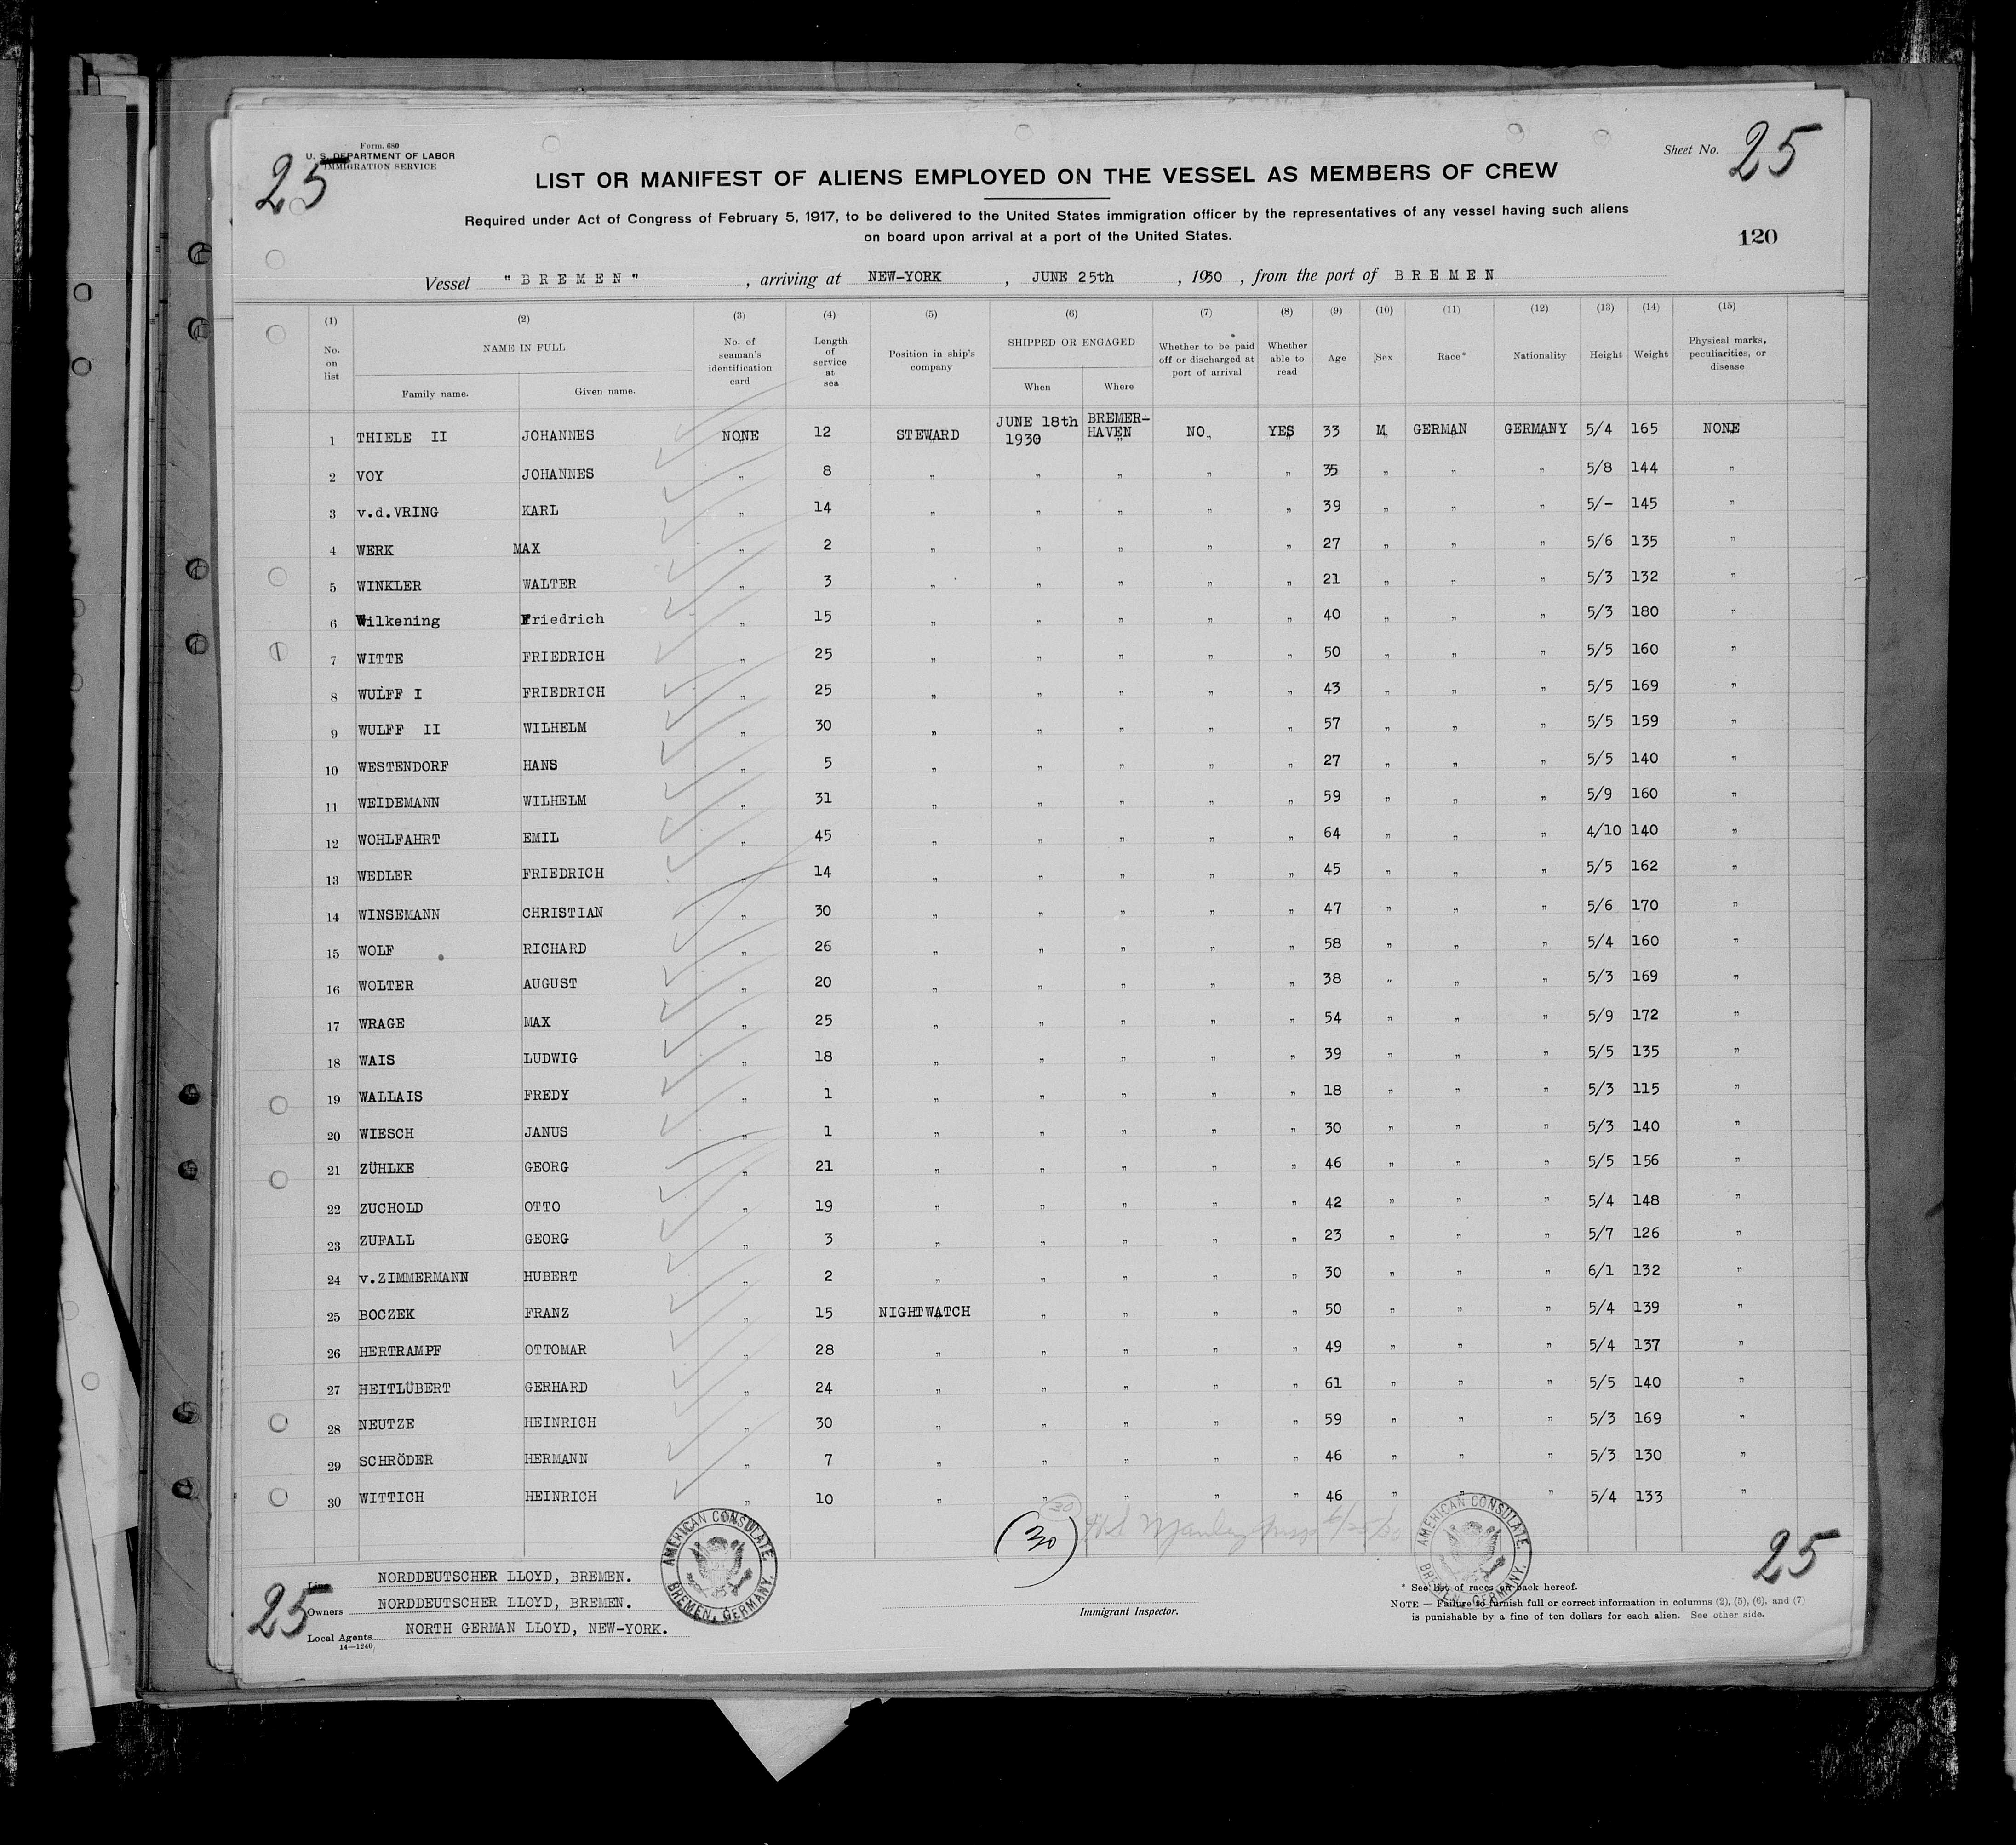 Form. 680
U. S. DEPARTMENT OF LABOR
IMMIGRATION SERVICE
25
Sheet No. 25
LIST OR MANIFEST OF ALIENS EMPLOYED ON THE VESSEL AS MEMBERS OF CREW
Required under Act of Congress of February 5, 1917, to be delivered to the United States immigration officer by the representatives of any vessel having such aliens
on board upon arrival at a port of the United States.
120
Vessel "BREMEN", arriving at NEW-YORK, JUNE 25th, 1930, from the port of BREMEN
(1) (2) (3) (4) (5) (6) (7) (8) (9) (10) (11) (12) (13) (14) (15)
No. on list NAME IN FULL Family name. Given name. No. of seaman's identification card Length of service at sea Position in ship's company SHIPPED OR ENGAGED When Where Whether to be paid off or discharged at port of arrival Whether able to read Age Sex Race* Nationality Height Weight Physical marks, peculiarities, or disease
1 THIELE II JOHANNES NONE 12 STEWARD JUNE 18th 1930 BREMER-HAVEN NO YES 33 M GERMAN GERMANY 5/4 165 NONE
2 VOY JOHANNES " 8 " " " " " 35 " " " 5/8 144 "
3 v.d.VRING KARL " 14 " " " " " 39 " " " 5/- 145 "
4 WERK MAX " 2 " " " " " 27 " " " 5/6 135 "
5 WINKLER WALTER " 3 " " " " " 21 " " " 5/3 132 "
6 Wilkening Friedrich " 15 " " " " " 40 " " " 5/3 180 "
7 WITTE FRIEDRICH " 25 " " " " " 50 " " " 5/5 160 "
8 WULFF I FRIEDRICH " 25 " " " " " 43 " " " 5/5 169 "
9 WULFF II WILHELM " 30 " " " " " 57 " " " 5/5 159 "
10 WESTENDORF HANS " 5 " " " " " 27 " " " 5/5 140 "
11 WEIDEMANN WILHELM " 31 " " " " " 59 " " " 5/9 160 "
12 WOHLFAHRT EMIL " 45 " " " " " 64 " " " 4/10 140 "
13 WEDLER FRIEDRICH " 14 " " " " " 45 " " " 5/5 162 "
14 WINSEMANN CHRISTIAN " 30 " " " " " 47 " " " 5/6 170 "
15 WOLF RICHARD " 26 " " " " " 58 " " " 5/4 160 "
16 WOLTER AUGUST " 20 " " " " " 38 " " " 5/3 169 "
17 WRAGE MAX " 25 " " " " " 54 " " " 5/9 172 "
18 WAIS LUDWIG " 18 " " " " " 39 " " " 5/5 135 "
19 WALLAIS FREDY " 1 " " " " " 18 " " " 5/3 115 "
20 WIESCH JANUS " 1 " " " " " 30 " " " 5/3 140 "
21 ZÜHLKE GEORG " 21 " " " " " 46 " " " 5/5 156 "
22 ZUCHOLD OTTO " 19 " " " " " 42 " " " 5/4 148 "
23 ZUFALL GEORG " 3 " " " " " 23 " " " 5/7 126 "
24 v.ZIMMERMANN HUBERT " 2 " " " " " 30 " " " 6/1 132 "
25 BOCZEK FRANZ " 15 NIGHTWATCH " " " " 50 " " " 5/4 139 "
26 HERTRAMPF OTTOMAR " 28 " " " " " 49 " " " 5/4 137 "
27 HEITLÜBERT GERHARD " 24 " " " " " 61 " " " 5/5 140 "
28 NEUTZE HEINRICH " 30 " " " " " 59 " " " 5/3 169 "
29 SCHRÖDER HERMANN " 7 " " " " " 46 " " " 5/3 130 "
30 WITTICH HEINRICH " 10 " " " " " 46 " " " 5/4 133 "
30
(30)
AMERICAN CONSULATE. BREMEN, GERMANY.
AMERICAN CONSULATE. BREMEN, GERMANY.
25
25
Line NORDDEUTSCHER LLOYD, BREMEN.
Owners NORDDEUTSCHER LLOYD, BREMEN.
Local Agents NORTH GERMAN LLOYD, NEW-YORK.
14—1240
Immigrant Inspector.
* See list of races on back hereof.
NOTE — Failure to furnish full or correct information in columns (2), (5), (6), and (7)
is punishable by a fine of ten dollars for each alien. See other side.